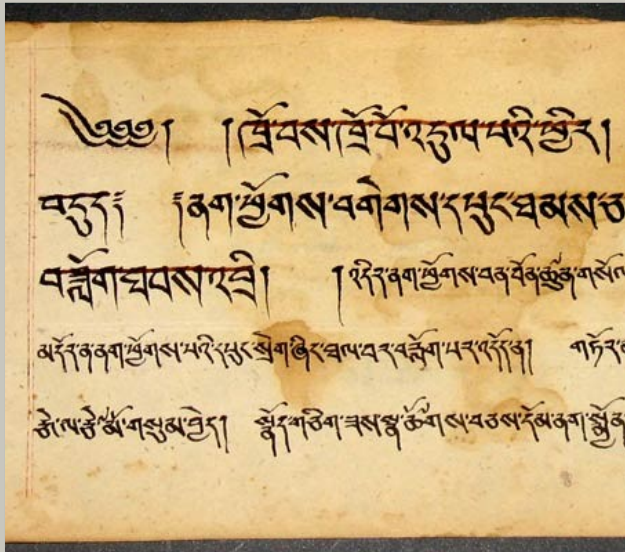 ༄༅༅། །ཁྲོ་བས་ཁྲོ་བོ་འདུལ་པའི་ཕྱིར།
བདུད༔ ༔ནག་ཕྱོགས་བགེགས་དཔུང་ཐམས་ཅ
བཟློག་ཐབས་འབྲི། །འདིར་ནག་ཕྱོགས་བན་བོན་
མདོར་ན་ནག་ཕྱོགས་པའི་དཔུང་སྲེག་ཞིང་ཐལ་བར་བརློག་པར་འདོད་ན། གཏོར་
རྩེ་ལ་རྩེ་མོ་གསུམ་བྱེད། སྣོད་གཅིག་ཟས་སྣ་ཚོགས་བཅས་དོམ་ནག་